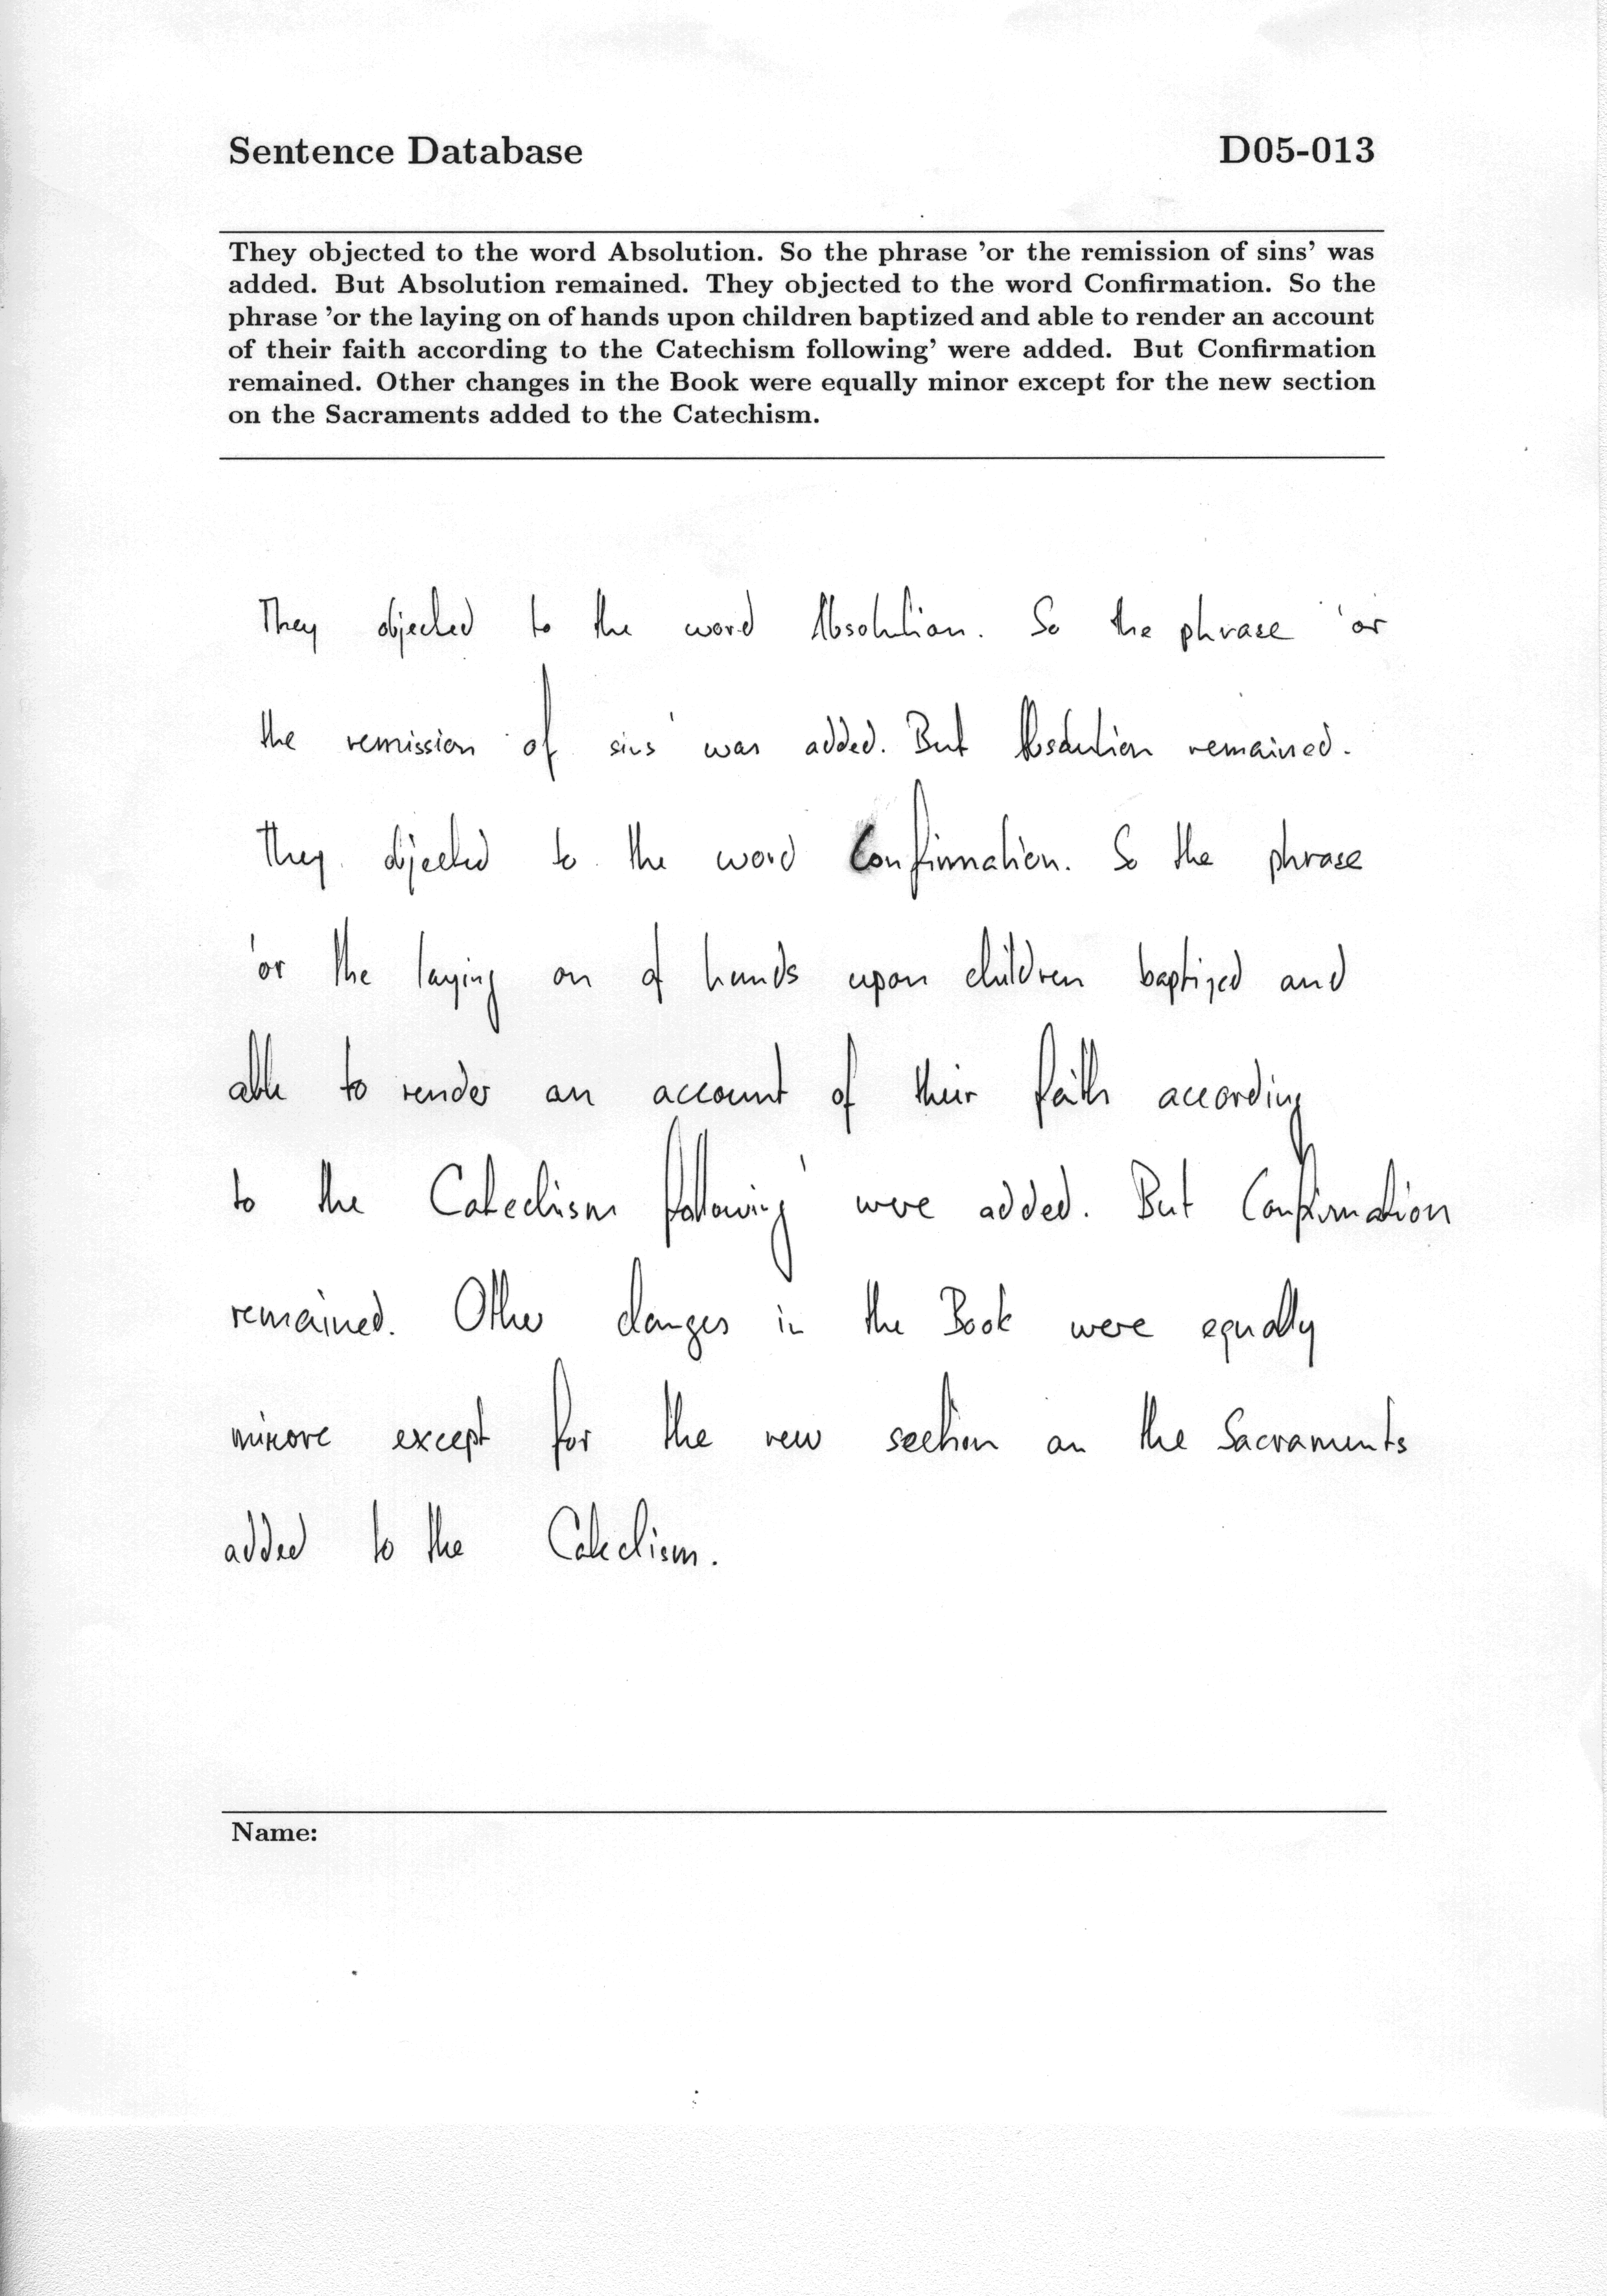 Sentence Database D05-013
They objected to the word Absolution. So the phrase 'or the remission of sins' was
added. But Absolution remained. They objected to the word Confirmation. So the
phrase 'or the laying on of hands upon children baptized and able to render an account
of their faith according to the Catechism following' were added. But Confirmation
remained. Other changes in the Book were equally minor except for the new section
on the Sacraments added to the Catechism.
They objected to the word Absolution. So the phrase 'or
the remission of sins' was added. But Absolution remained.
They objected to the word Confirmation. So the phrase
'or the laying on of hands upon children baptized and
able to render an account of their faith according
to the Catechism following' were added. But Confirmation
remained. Other changes in the Book were equally
minore except for the new section on the Sacraments
added to the Catechism.
Name: